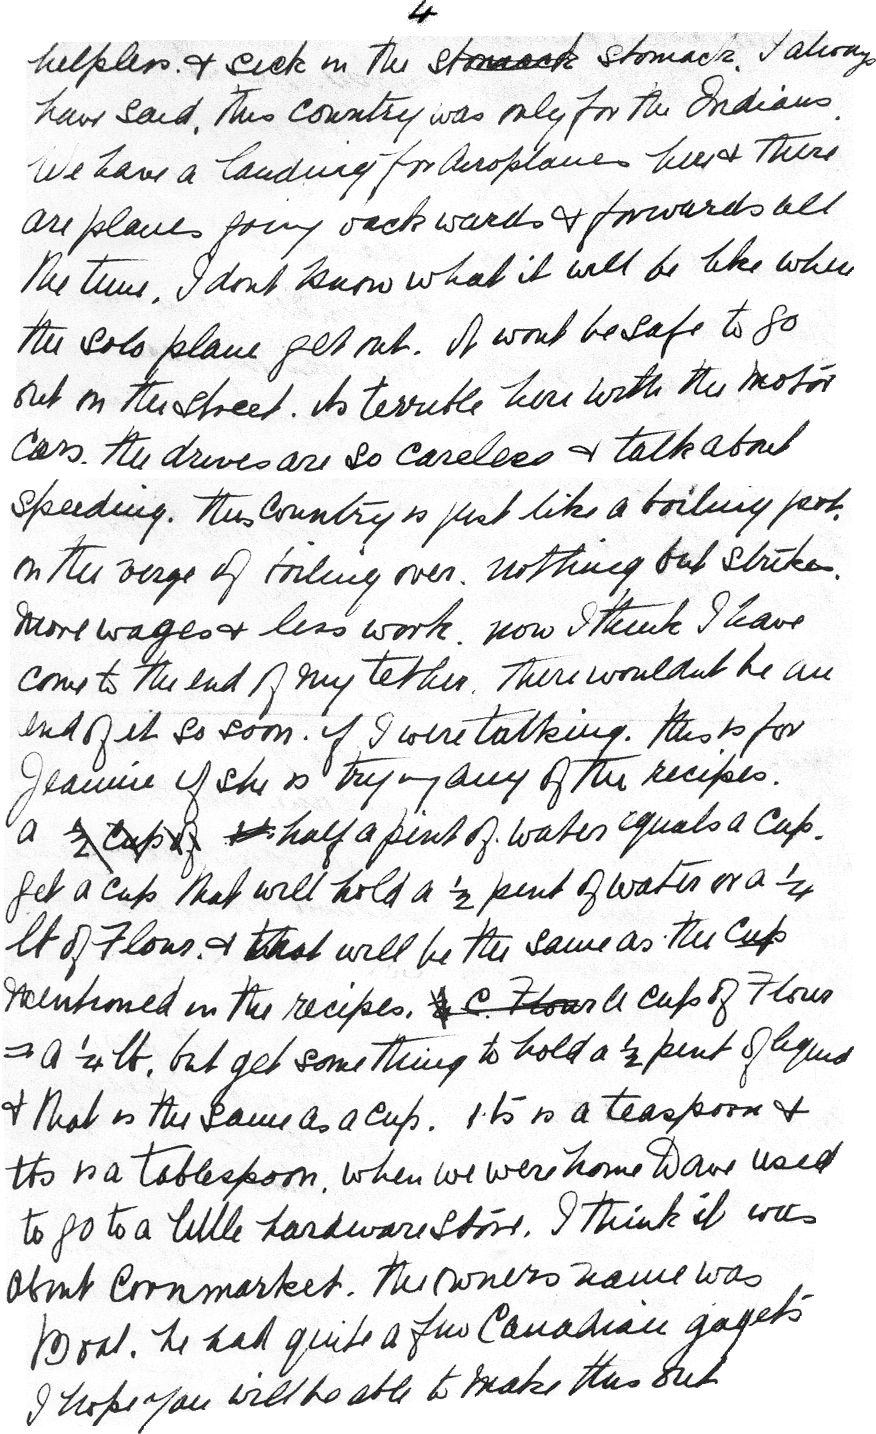 4
helpless. & sick in the stomack stomack. I always
have said, this country was only for the Indians.
We have a landing for Aeroplanes here & there
are planes going backwards & forwards all
the time. I dont know what it will be like when
the solo plane get out. It wont be safe to go
out on the street. its terrible here with the motor
cars. the drives are so careless & talk about
speeding. this country is just like a boiling pot.
on the verge of boiling over. nothing but strikes.
more wages & less work. now I think I have
come to the end of my tether. there wouldnt be an
end of it so soon. if I were talking. this is for
Jeannie if she is trying any of the recipes.
a ½ cup of half a pint of water equals a cup.
get a cup that will hold a ½ pint of water or a ¼
lb of Flour. & that will be the same as the cup
mentioned in the recipes. ¼ C. Flour A cup of Flour
= a ¼ lb. but get something to hold a ½ pint of liquid
& that is the same as a cup. 1 ts is a teaspoon &
tbs is a tablespoon. when we were home Dave used
to go to a little hardware store. I think it was
about Cornmarket. the owners name was
he had quite a few Canadian gagets
I hope you will be able to make this out